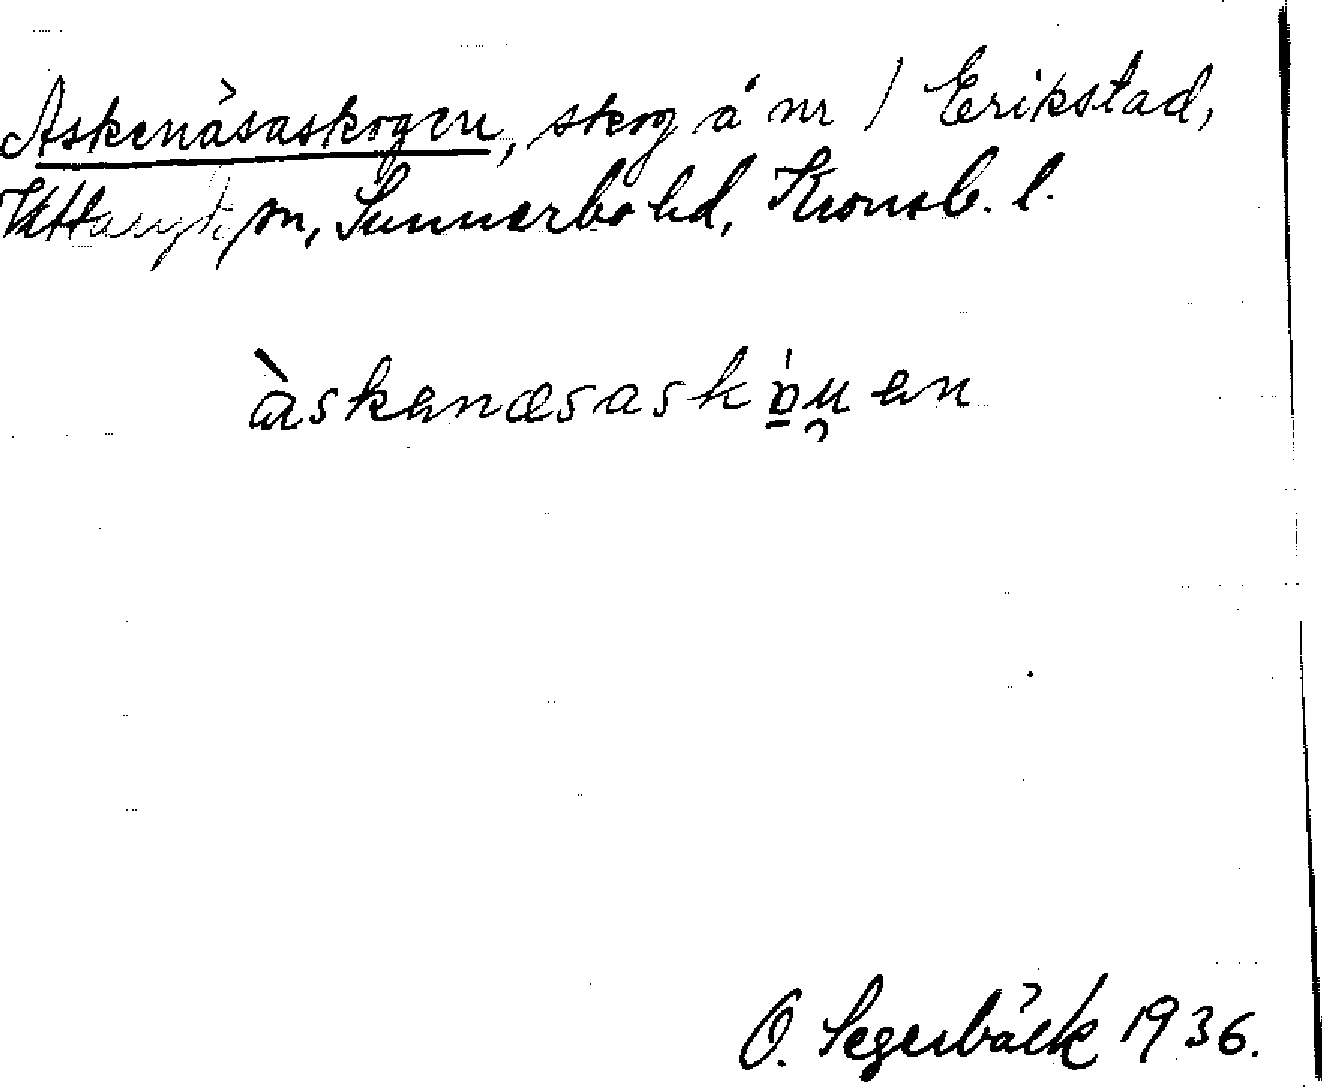 Askenäsaskogen, skog å nr 1 Erikstad,
Vittaryds sn, Sunnerbo hd, Kronob. l.
àskenæsaskɒ̱́u̯en
O. Segerbäck 1936.